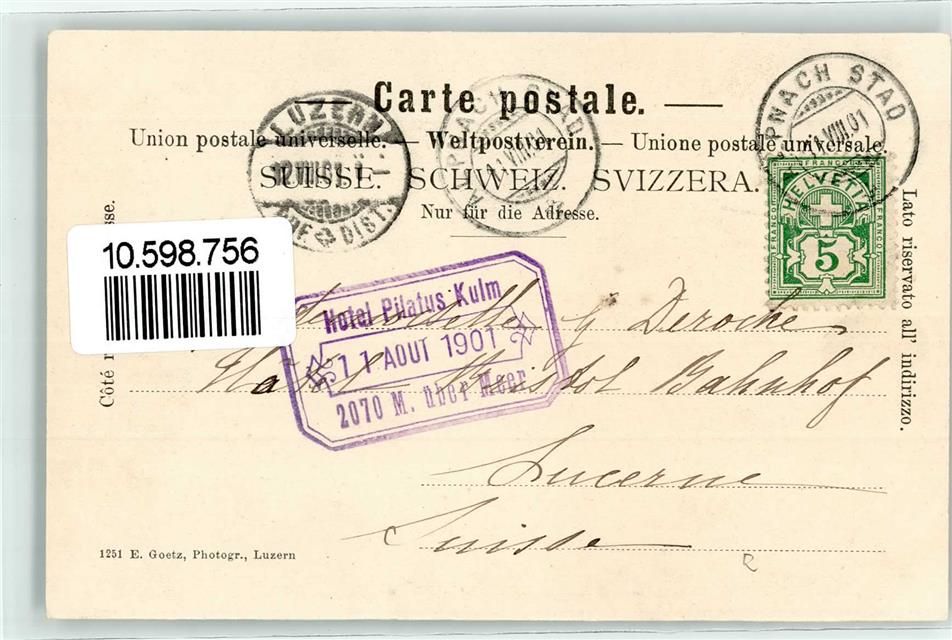 Carte postale.
Union postale universelle. — Weltpostverein. — Unione postale universale.
SUISSE. SCHWEIZ. SVIZZERA.
Nur für die Adresse.
LUZERN
DIST.
PNACH STAD
11.VIII.01
PNACH STAD
VIII.01
FRANCO
HELVETIA
FRANCO
FRANCO
5
10.598.756
Côté
Lato riservato all' indirizzo.
Hotel Pilatus Kulm
11 AOUT 1901
2070 M. über Meer
g Deroche
Hotel Bristol Bahnhof
Lucerne
Suisse
1251 E. Goetz, Photogr., Luzern